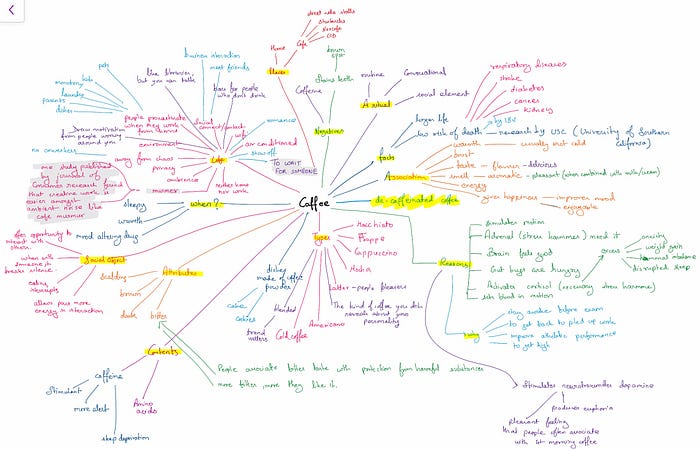 Coffee
Places
Home
Cafe
Starbucks
CCD
Negatives
Stains teeth
Caffeine
A ritual
routine
Conversational
social element
facts
longer life
low risk of death
by 18%
research by USC (University of Southern
California)
respiratory diseases
stroke
diabetes
cancer
kidney
Association
warmth
usually not cold
boost
taste
flavour
delicious
smell
aromatic
pleasant (when combined with milk/cream)
energy
gives happiness
improves mood
enjoyable
de-caffeinated coffee
Reasons
Stimulates motion
Adrenal (stress hormones) need it
Brain feels good
Gut bugs are hungry
Activates cortisol (recovery stress hormone)
stress
anxiety
weight gain
disrupted sleep
Why
stay awake before exam
to get back to piled up work
improve athletic performance
to get high
Stimulates neurotransmitter dopamine
produces euphoria
pleasant feeling
that people often associate
with 1st morning coffee
Types
Macchiato
Frappe
Cappuccino
Mocha
Latte - people pleasers
The kind of coffee you drink
reveals about your
personality
Americano
Cold coffee
blended
trend
setters
dishes
made of coffee
powder
cake
People associate bitter taste with protection from harmful substances
more bitter, more they like it.
Contents
caffeine
Stimulant
more alert
sleep deprivation
Amino
acids
Attributes
brown
dark
bitter
Social aspect
offers opportunity to
interact with
others.
when with
someone it
breaks silence.
eating
interrupts
allows pass more
energy in interaction
when?
sleepy
warmth
mood altering drug
TO WAIT
FOR SOMEONE
Cafe
human interaction
meet friends
like libraries,
but you can talk
bars for people
who don't drink
romance
show off
wifi
air conditioned
Social
people procrastinate
when they work
from home
pets
kids
laundry
parents
dishes
Draw motivation
from people working
around you
environment
no coworkers
away from chaos
privacy
ambience
rather home
nor work
one study published
by journal of
Consumer research found
that creative work is
easier amongst
ambient noise like
cafe murmur